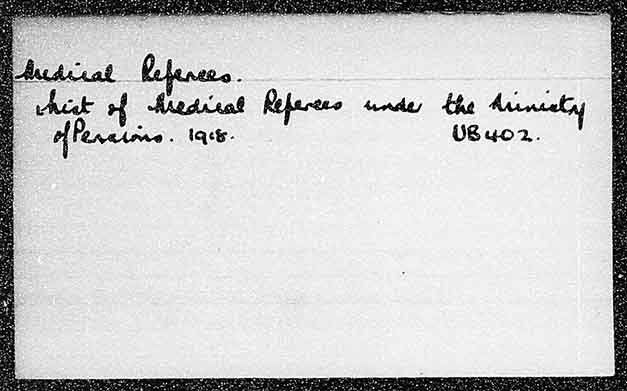 Medical Referees.
List of Medical Referees under the Ministry
of Pensions. 1918. UB402.